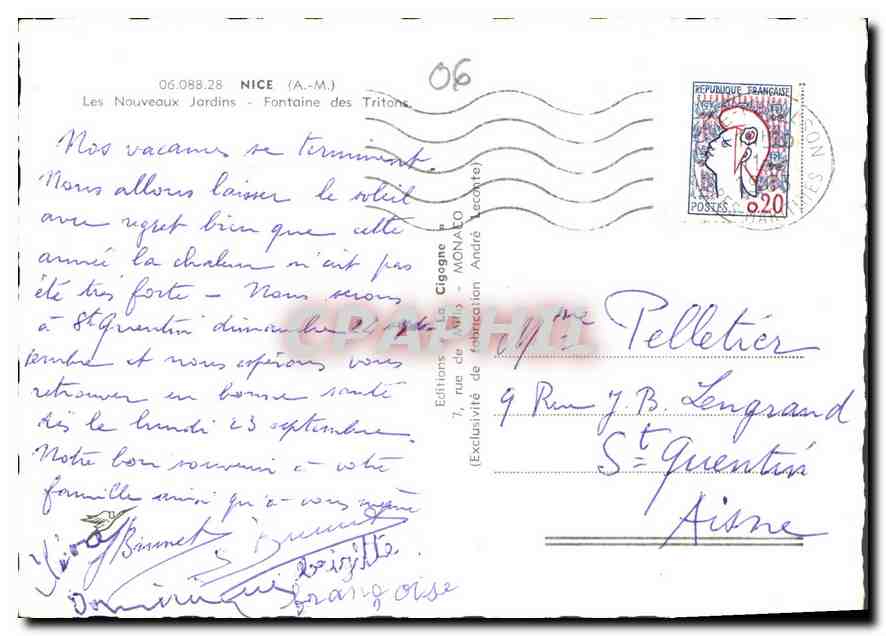 06.088.28 NICE (A.-M.)
Les Nouveaux Jardins - Fontaine des Tritons.
06
Nos vacances se terminent.
Nous allons laisser le soleil
avec regret bien que cette
année la chaleur n'ait pas
été très forte - Nous serons
à St Quentin dimanche 22 sept-
embre et nous espérons vous
retrouver en bonne santé
dès le lundi 23 septembre.
Notre bon souvenir à votre
famille ainsi qu'à vous même
Brunet
Brunet
Brigitte
Dominique
Françoise
Editions "La Cigogne"
7, rue de Millo - MONACO
(Exclusivité de fabrication André Leconte)
REPUBLIQUE FRANÇAISE
POSTES 0.20
MARITIMES
CPAPHIL
Mme Pelletier
9 Rue J.B. Lengrand
St Quentin
Aisne